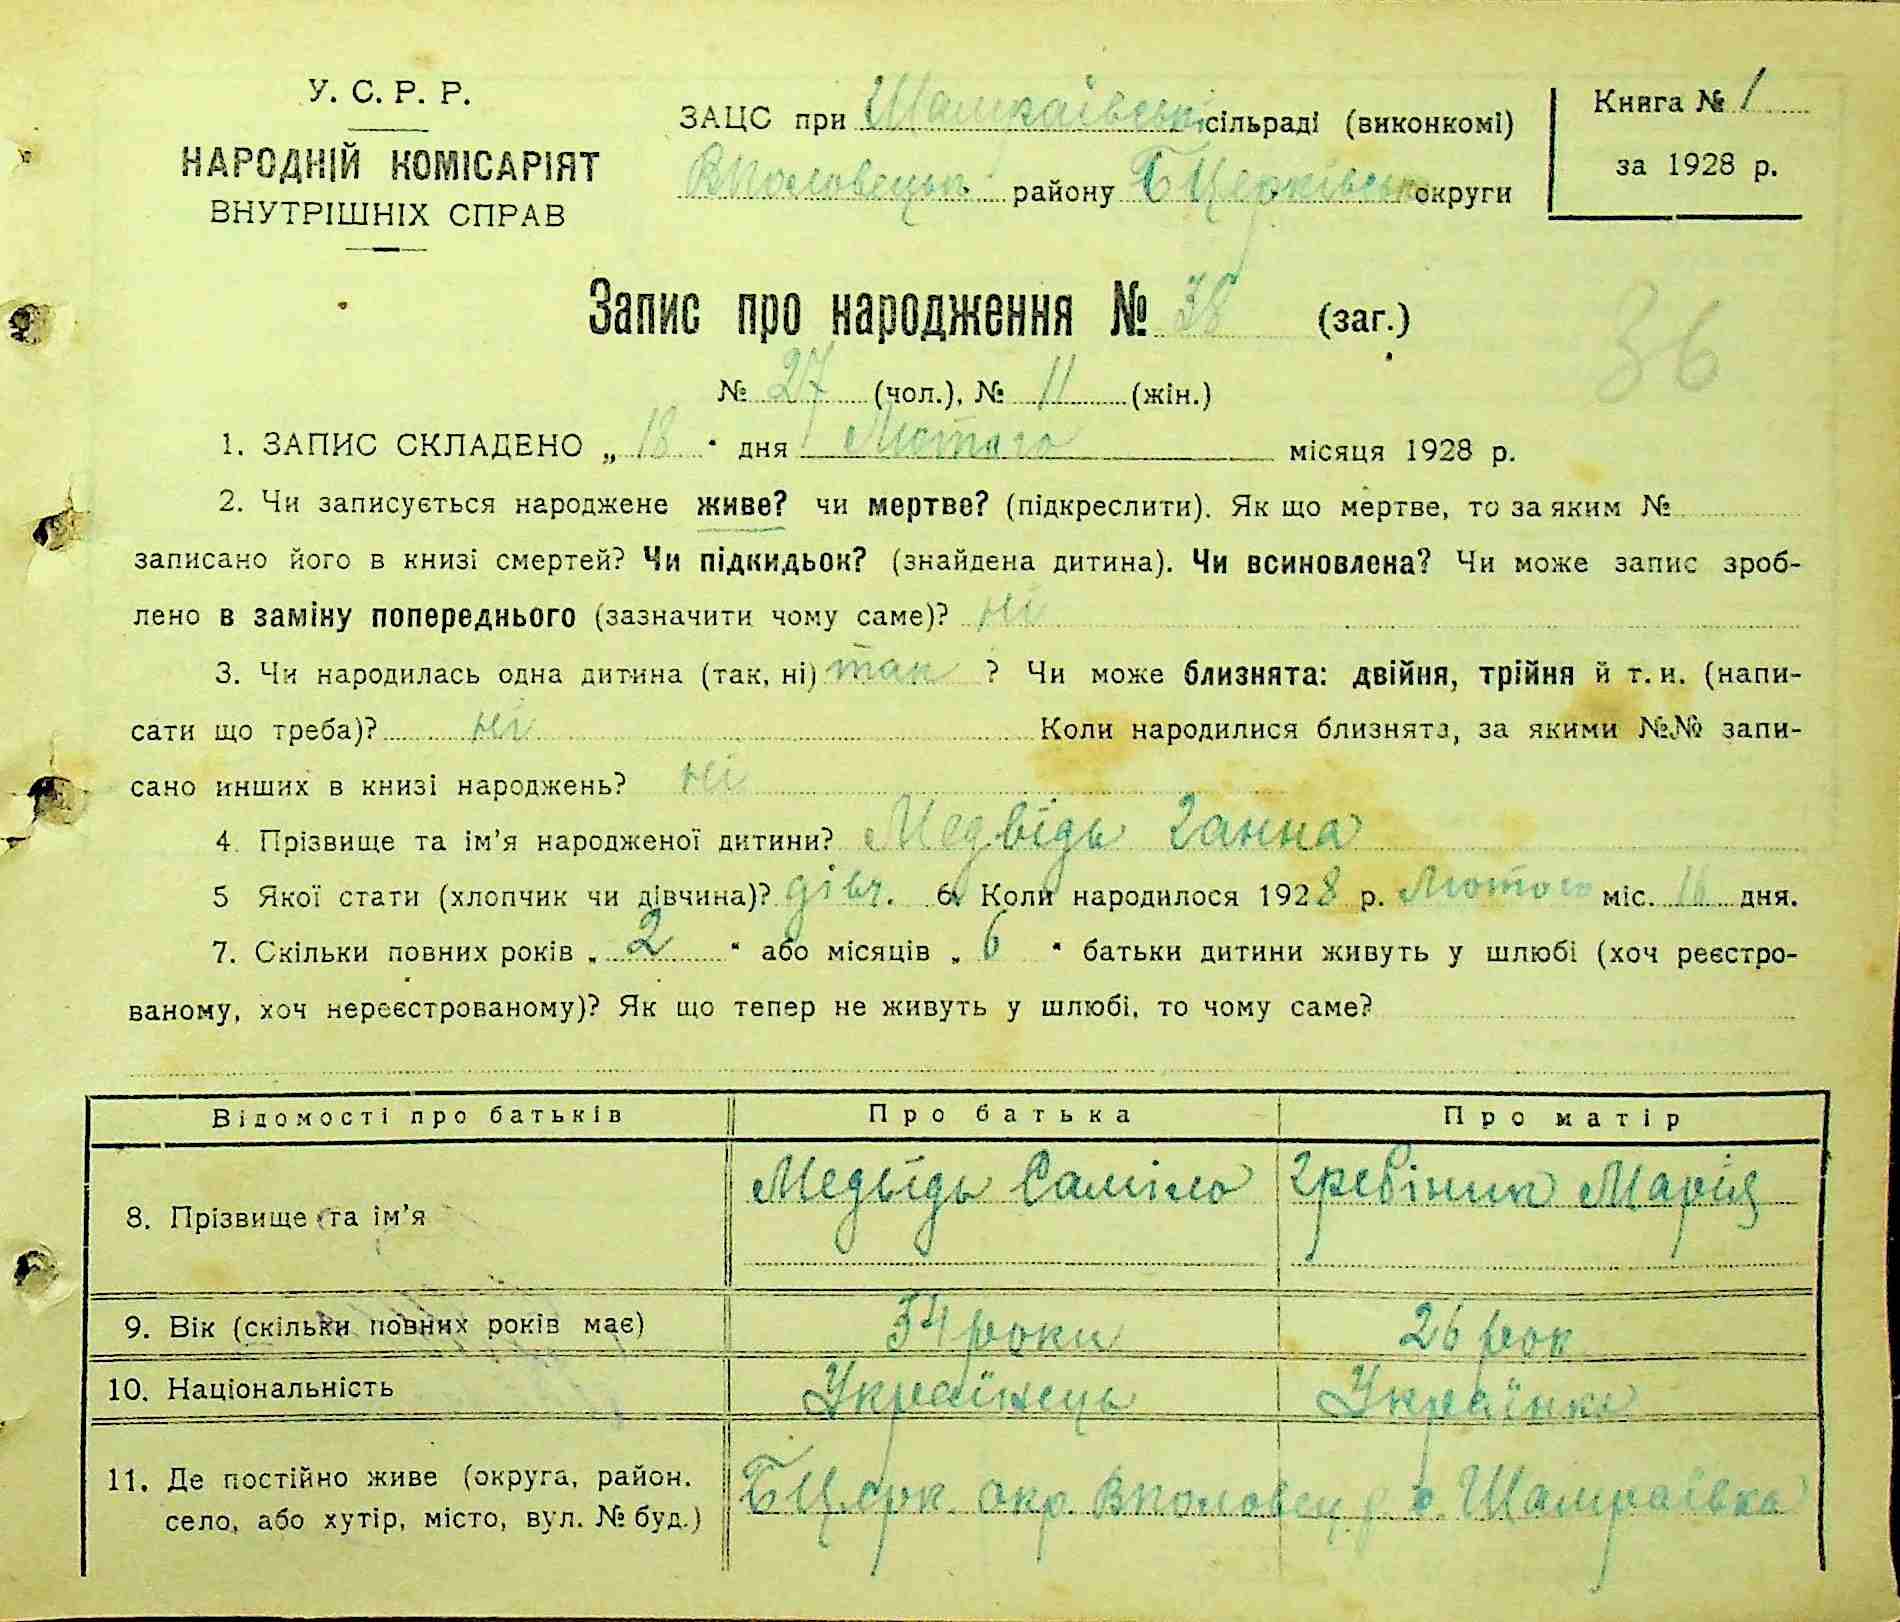 У. С. Р. Р.
НАРОДНІЙ КОМІСАРІЯТ
ВНУТРІШНІХ СПРАВ
ЗАЦС при Шамраївській сільраді (виконкомі)
ВПоловецьк. району БЦерківської округи
Книга № 1
за 1928 р.
Запис про народження № 38 (заг.)
36
№ 27 (чол.), № 11 (жін.)
1. ЗАПИС СКЛАДЕНО „ 18 " дня Лютого місяця 1928 р.
2. Чи записується народжене живе? чи мертве? (підкреслити). Як що мертве, то за яким №
записано його в книзі смертей? Чи підкидьок? (знайдена дитина). Чи всиновлена? Чи може запис зроб-
лено в заміну попереднього (зазначити чому саме)? ні
3. Чи народилась одна дитина (так, ні) так ? Чи може близнята: двійня, трійня й т. и. (напи-
сати що треба)? ні Коли народилися близнята, за якими №№ запи-
сано инших в книзі народжень? ні
4. Прізвище та ім'я народженої дитини? Медвідь Ганна
5 Якої стати (хлопчик чи дівчина)? дівч. 6. Коли народилося 1928 р. Лютого міс. 16 дня.
7. Скільки повних років „ 2 " або місяців „ 6 " батьки дитини живуть у шлюбі (хоч реєстро-
ваному, хоч нереєстрованому)? Як що тепер не живуть у шлюбі, то чому саме?
Відомості про батьків Про батька Про матір
8. Прізвище та ім'я Медвідь Саміло Гребіник Марія
9. Вік (скільки повних років має) 34 роки 26 рок
10. Національність Українець Українка
11. Де постійно живе (округа, район.
село, або хутір, місто, вул. № буд.) БЦерк. окр. ВПоловец. р. с. Шамраївка